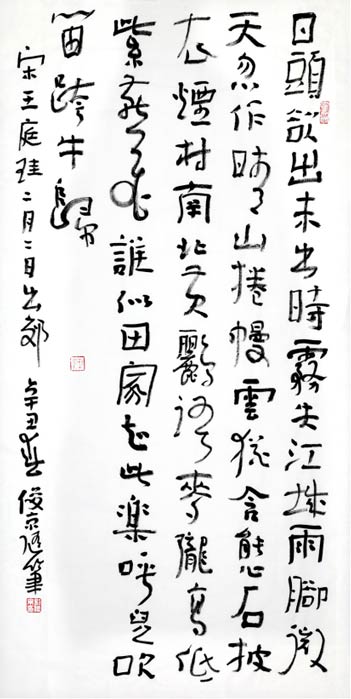 日頭欲出未出時霧失江城雨腳微
天忽作晴山捲幔雲猶含態石披
衣煙村南北黃鸝語麥隴高低
紫燕飛誰似田家知此楽呼兒吹
笛跨牛歸
宋王庭珪二月二日出郊 辛丑春俊京随筆